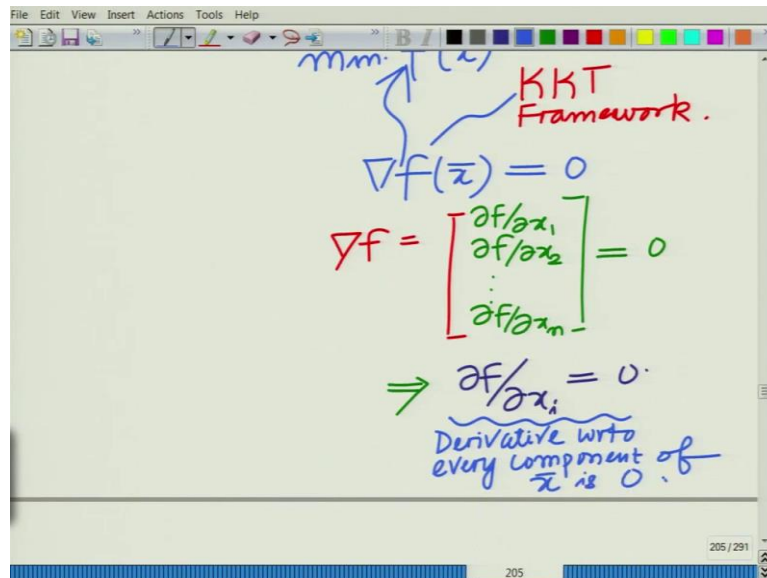 File Edit View Insert Actions Tools Help
B I
min. f(x̄)
KKT
Framework.
∇f(x̄) = 0
∇f = [ ∂f/∂x₁
∂f/∂x₂
⋮
∂f/∂xₙ ] = 0
⇒ ∂f/∂xᵢ = 0.
Derivative wrto
every component of
x̄ is 0.
205 / 291
205